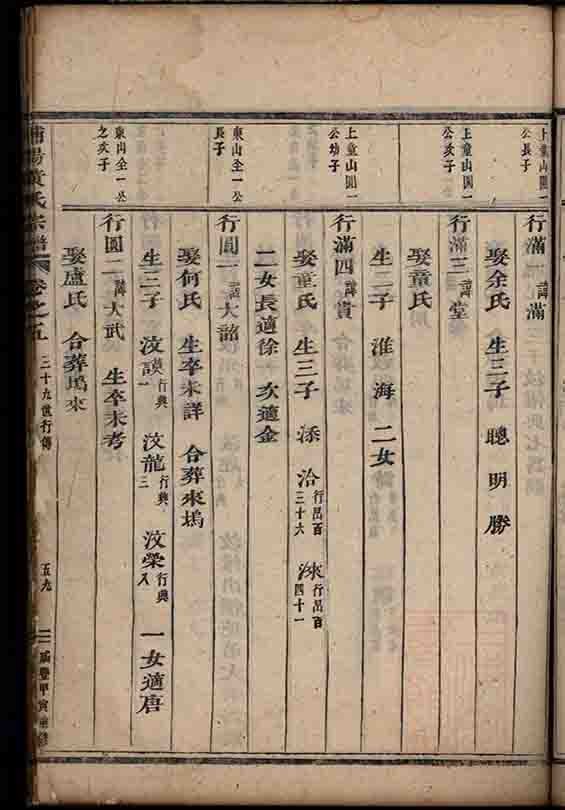 上童山闗一公長子
行滿一諱滿
娶余氏 生三子 聰 明 勝
上童山闗一公次子
行滿三諱堂
娶童氏
生二子 淮 海 二女
上童山闗一公幼子
行滿四諱貴
娶童氏 生三子 添 洽行呂百三十六 洓行呂百四十一
二女長適徐 次適金
東山全一公長子
行圓一諱大韶
娶何氏 生卒未詳 合葬來塢
生三子 汶謨行典一 汶龍行典三 汶榮行典八 一女適唐
東山全一公之次子
行圓二諱大武 生卒未考
娶盧氏 合葬塢來
陽黃氏宗譜 卷之五 二十九世行傳 五九 咸豐甲寅重修